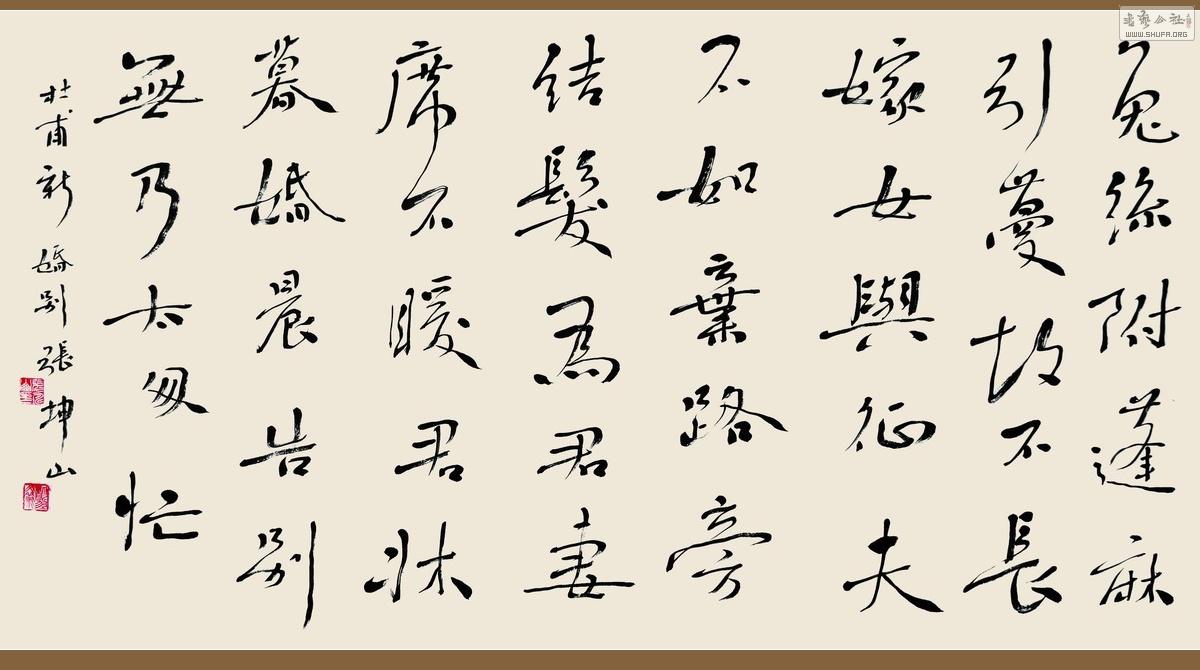 兔絲附蓬麻
引蔓故不長
嫁女與征夫
不如棄路旁
結髮爲君妻
席不暖君牀
暮婚晨告別
無乃太匆忙
杜甫新婚別 張坤山
書藝公社
WWW.SHUFA.ORG